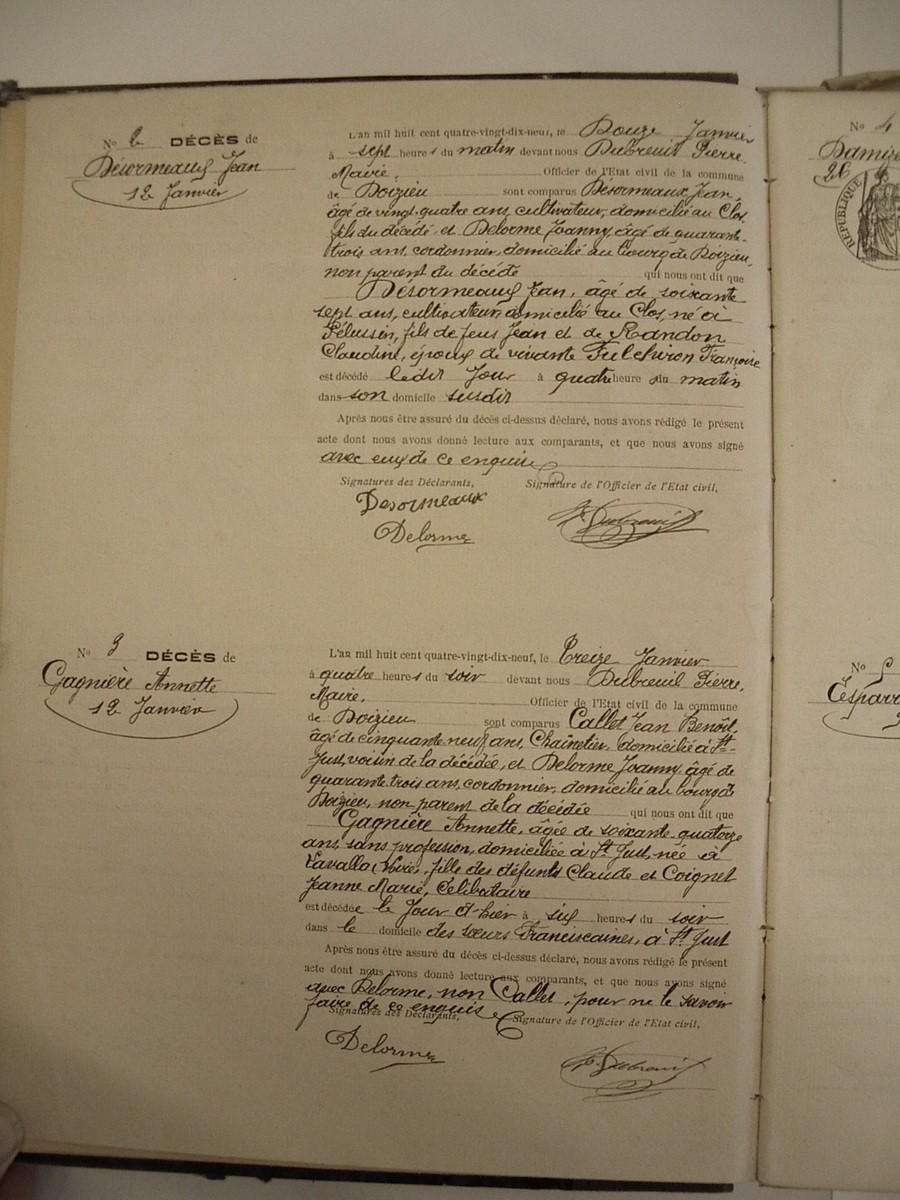 No 2 DÉCÈS de
Désormeaux Jean
12 Janvier
L'an mil huit cent quatre-vingt-dix-neuf, le Douze Janvier
à sept heures du matin devant nous Dubreuil Pierre,
Maire, Officier de l'Etat civil de la commune
de Doizieu sont comparus Désormeaux Jean
âgé de vingt-quatre ans, cultivateur, domicilié au Clos,
fils du décédé et Delorme Joanny âgé de quarante-
trois ans, cordonnier, domicilié au bourg de Doizieu,
non parent du décédé qui nous ont dit que
Désormeaux Jean, âgé de soixante
sept ans, cultivateur, domicilié au Clos, né à
Pélussin, fils de feus Jean et de Randon
Claudine, époux de vivante Fulchiron Françoise
est décédé ledit jour à quatre heures du matin
dans son domicile susdit
Après nous être assuré du décès ci-dessus déclaré, nous avons rédigé le présent
acte dont nous avons donné lecture aux comparants, et que nous avons signé
avec eux de ce enquis
Signatures des Déclarants, Signature de l'Officier de l'Etat civil,
Desormeaux
Delorme
P. Dubreuil
No 3 DÉCÈS de
Gagnière Annette
12 Janvier
L'an mil huit cent quatre-vingt-dix-neuf, le Treize Janvier
à quatre heures du soir devant nous Dubreuil Pierre,
Maire, Officier de l'Etat civil de la commune
de Doizieu sont comparus Callet Jean Benoît,
âgé de cinquante-neuf ans, Chaînetier, domicilié à St-
Just, voisin de la décédée, et Delorme Joanny, âgé de
quarante-trois ans, cordonnier, domicilié au bourg de
Doizieu, non parent de la décédée qui nous ont dit que
Gagnière Annette, âgée de soixante-quatorze
ans, sans profession, domiciliée à St Just, née à
Lavalla (Loire), fille des défunts Claude et Coignet
Jeanne Marie, Célibataire
est décédée le jour d'hier à six heures du soir
dans le domicile des sœurs Franciscaines, à St Just
Après nous être assuré du décès ci-dessus déclaré, nous avons rédigé le présent
acte dont nous avons donné lecture aux comparants, et que nous avons signé
avec Delorme, non Callet, pour ne le savoir
faire de ce enquis
Signatures des Déclarants, Signature de l'Officier de l'Etat civil,
Delorme
P. Dubreuil
No 4
26
RÉPUBLIQUE
No 5